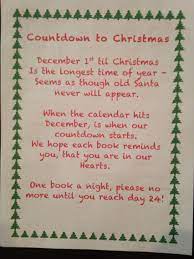 Countdown to Christmas
December 1st til Christmas
Is the longest time of year -
Seems as though old Santa
never will appear.
When the calendar hits
December, is when our
countdown starts.
We hope each book reminds
you, that you are in our
Hearts.
One book a night, please no
more until you reach day 24!